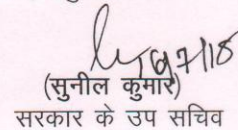 (सुनील कुमार)
सरकार के उप सचिव